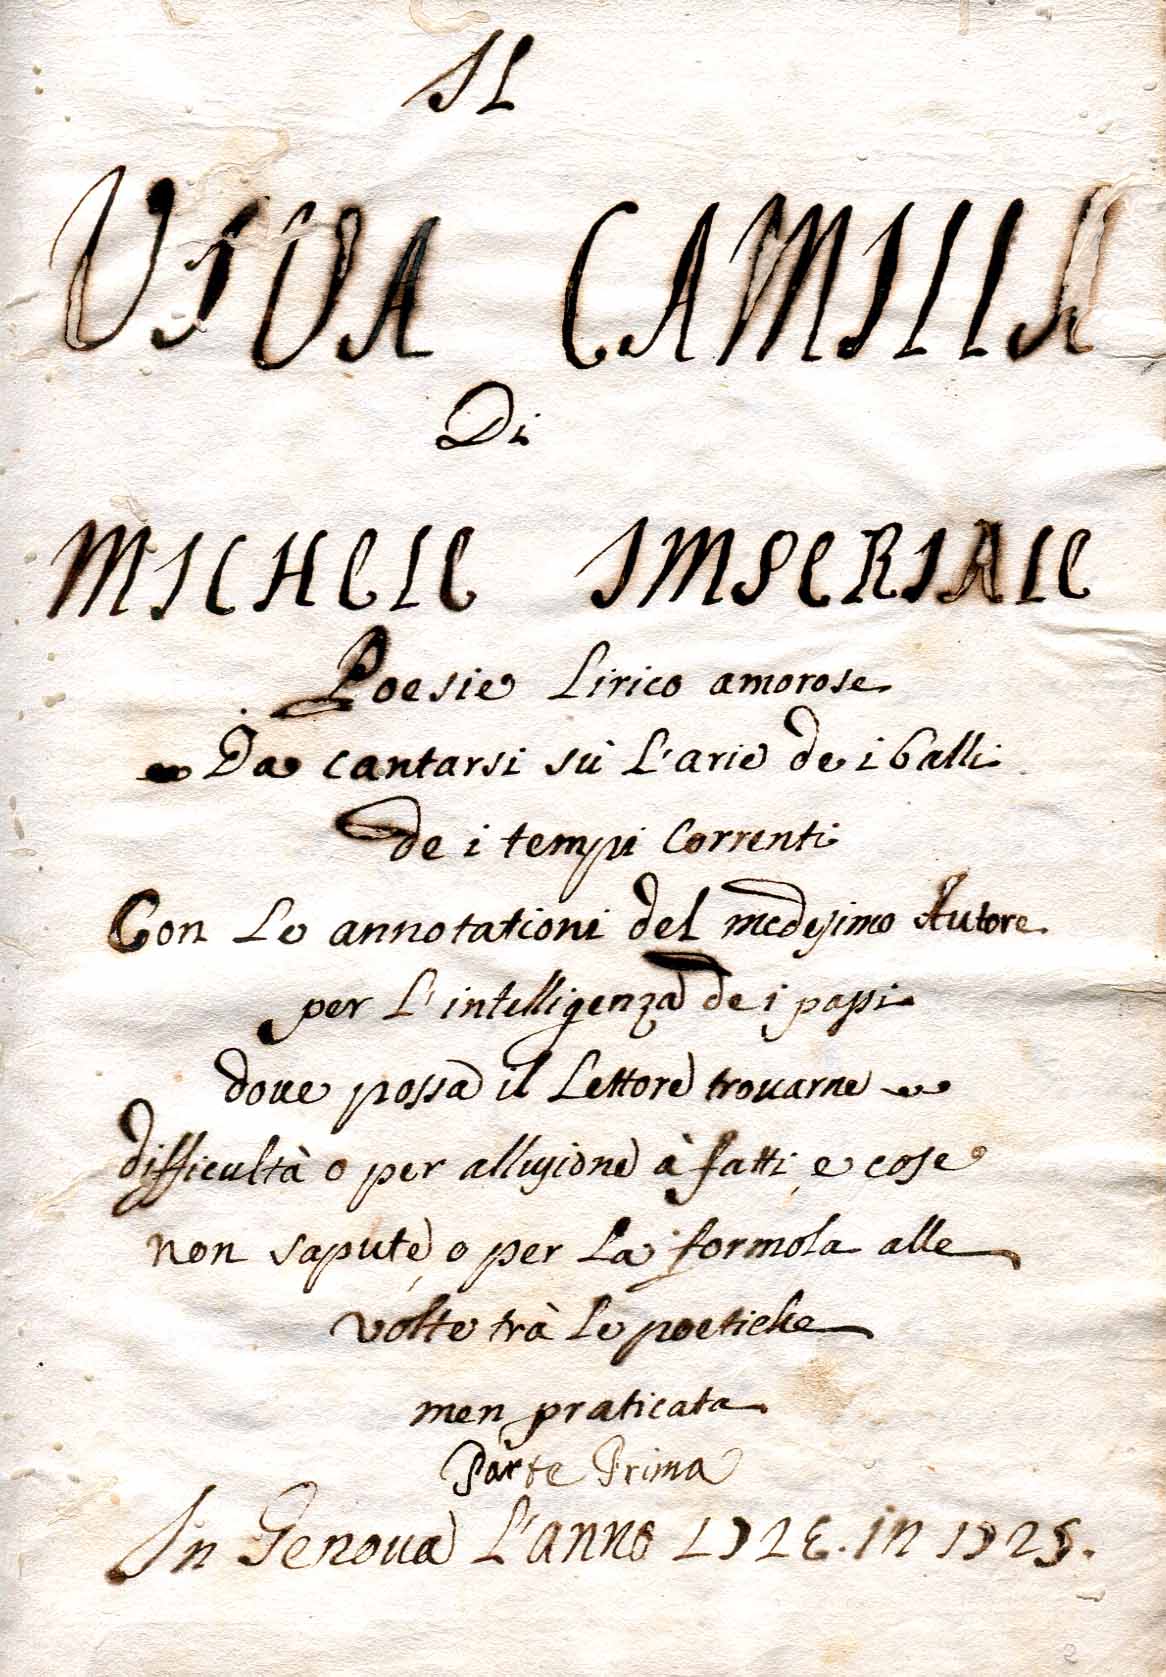 IL
VIVA CAMILLA
Di
MICHELE IMPERIALE
Poesie Lirico amorose
Da cantarsi sù L'arie de i balli
de i tempi correnti
Con Le annotationi del medesimo Autore
per L'intelligenza de i passi
doue possa il Lettore trouarne
difficultà o per allusione à fatti, e cose
non sapute, o per La formola alle
volte trà Le poetiche
men praticata
Parte Prima
In Genoua L'anno in
2